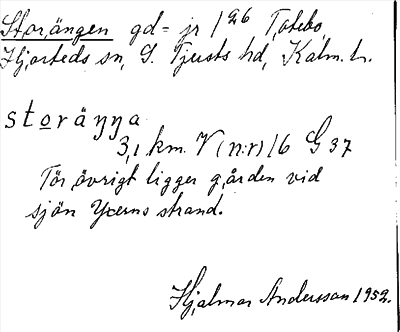 Storängen gd = jr 1 26 Totebo,
Hjorteds sn, S. Tjusts hd, Kalm. l.
storäŋŋa
3,1 km. V (n:r) 16 G 37
För övrigt ligger gården vid
sjön Yxerns strand.
Hjalmar Andersson 1952.